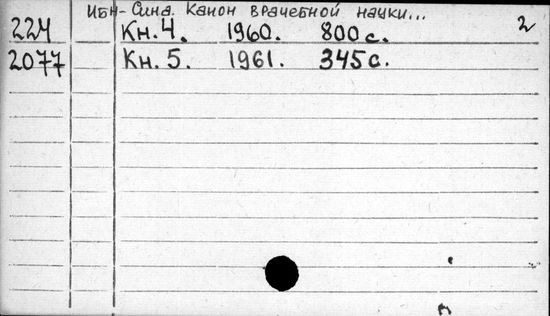 Ибн-Сина. Канон врачебной науки... 2
224 Кн. 4. 1960. 800 с.
2077 Кн. 5. 1961. 345 с.